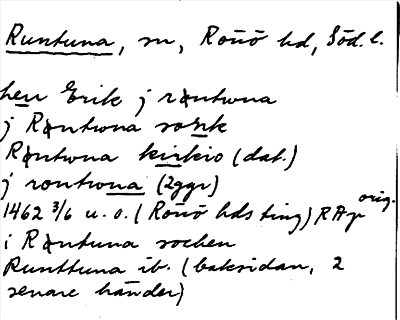 Runtuna, sn, Rönö hd, Söd. l.
herr Erik j røntwna
j Røntwna soknk
Røntwna kirkio (dat.)
j rontwna (2ggr)
1462 3/6 u. o. (Rönö hds ting) RAp orig.
i Røntuna sochen
Runttuna ib. (baksidan, 2
senare händer)